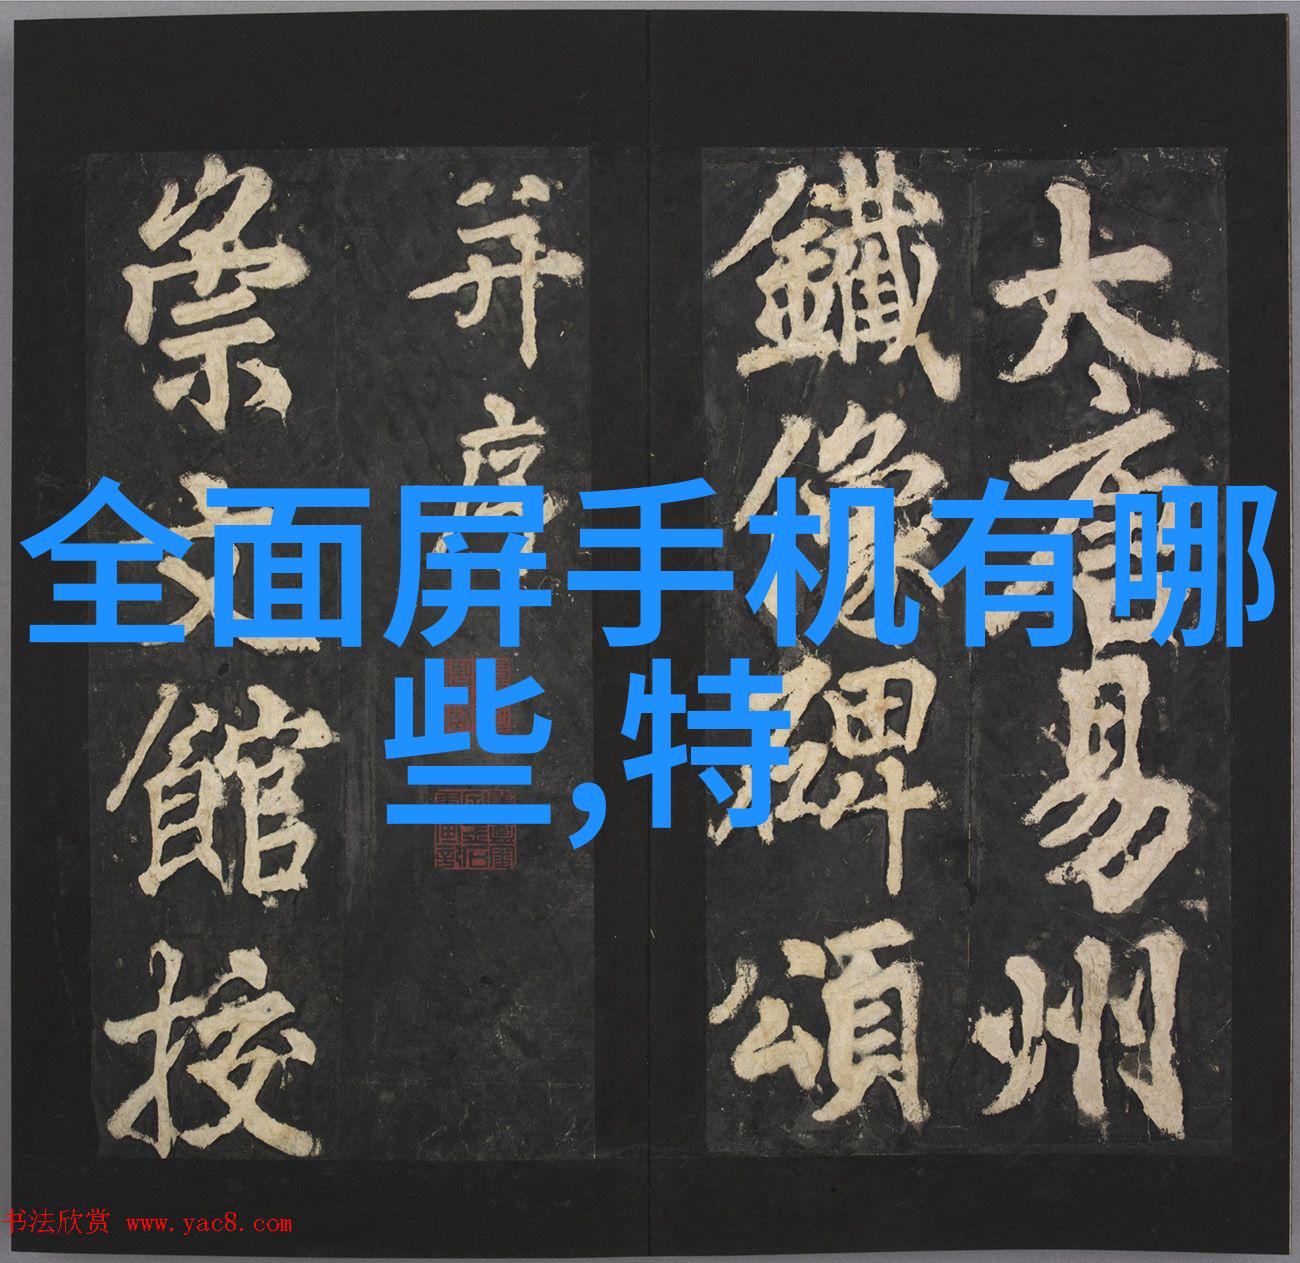 全面屏手机有哪
些,特
大唐易州
鐵像碑頌
并序
崇文館挍
书法欣赏 www.yac8.com